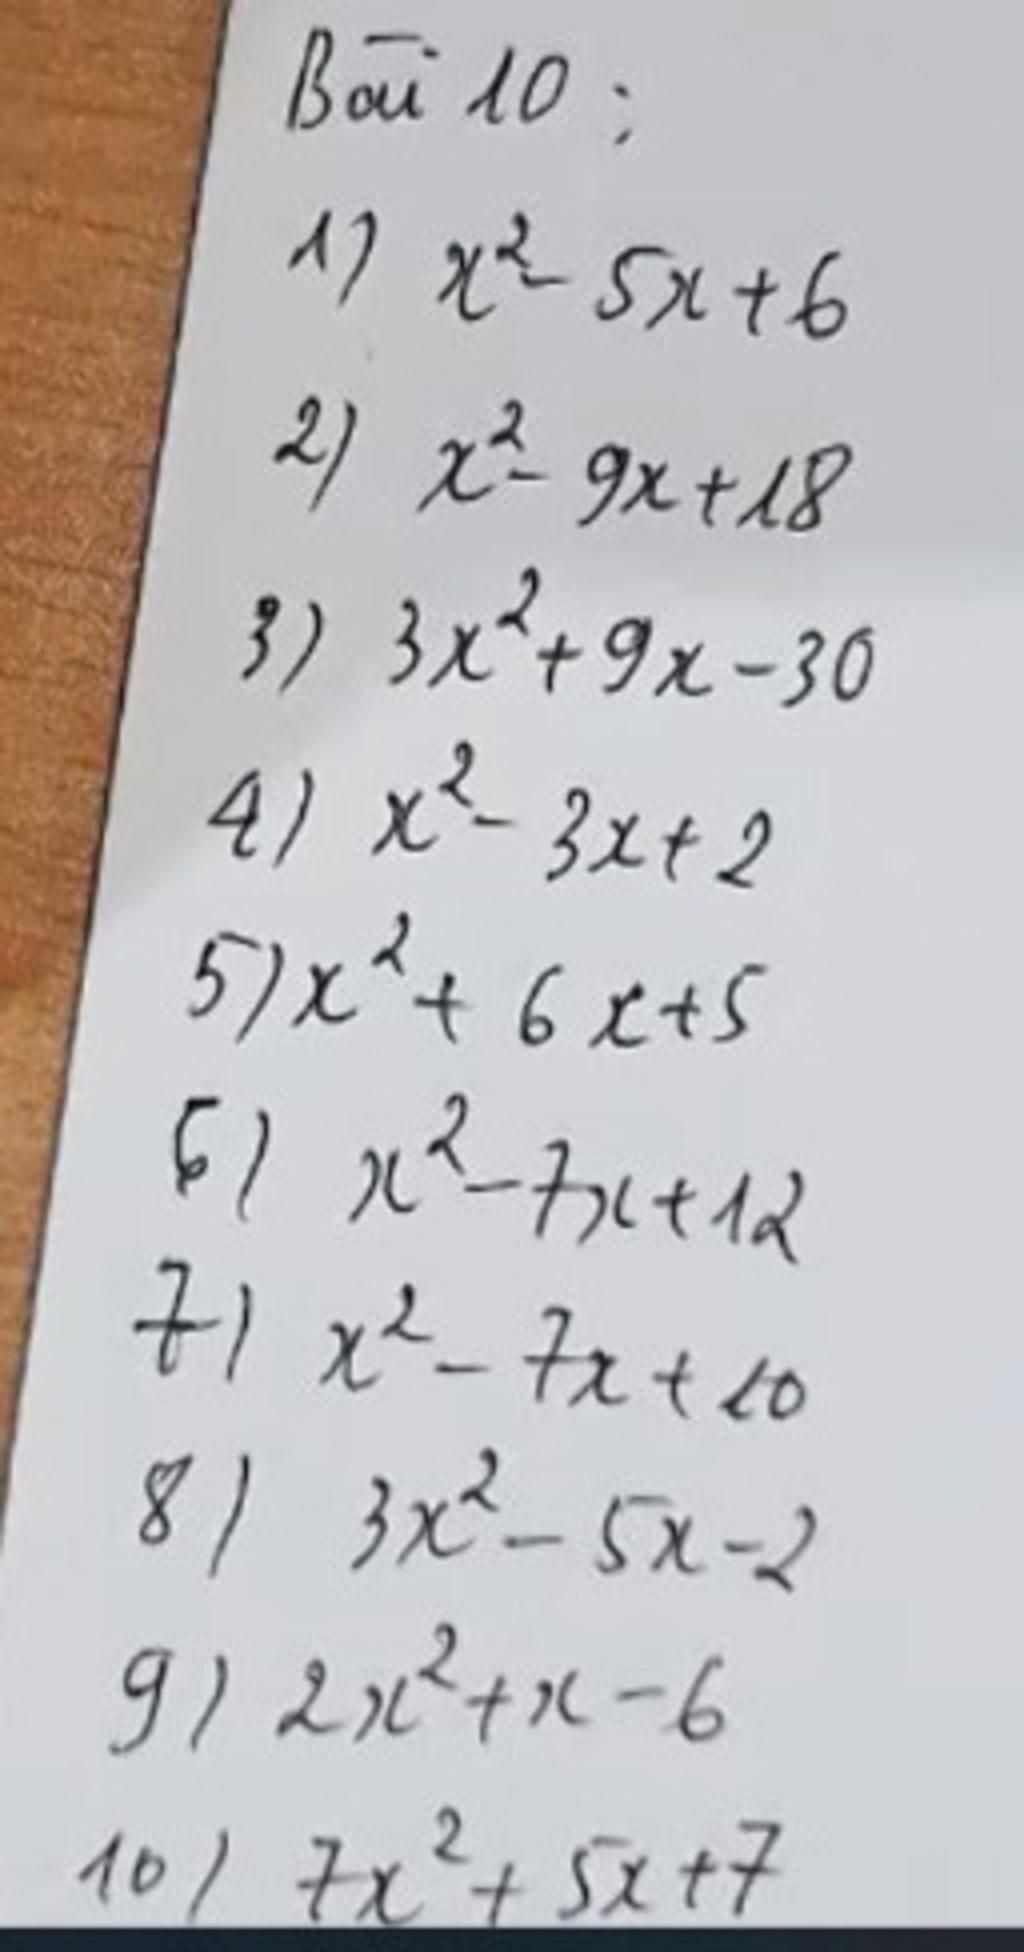 Bài 10 :
1) x² - 5x + 6
2) x² - 9x + 18
3) 3x² + 9x - 30
4) x² - 3x + 2
5) x² + 6x + 5
6) x² - 7x + 12
7) x² - 7x + 10
8) 3x² - 5x - 2
9) 2x² + x - 6
10) 7x² + 5x + 7